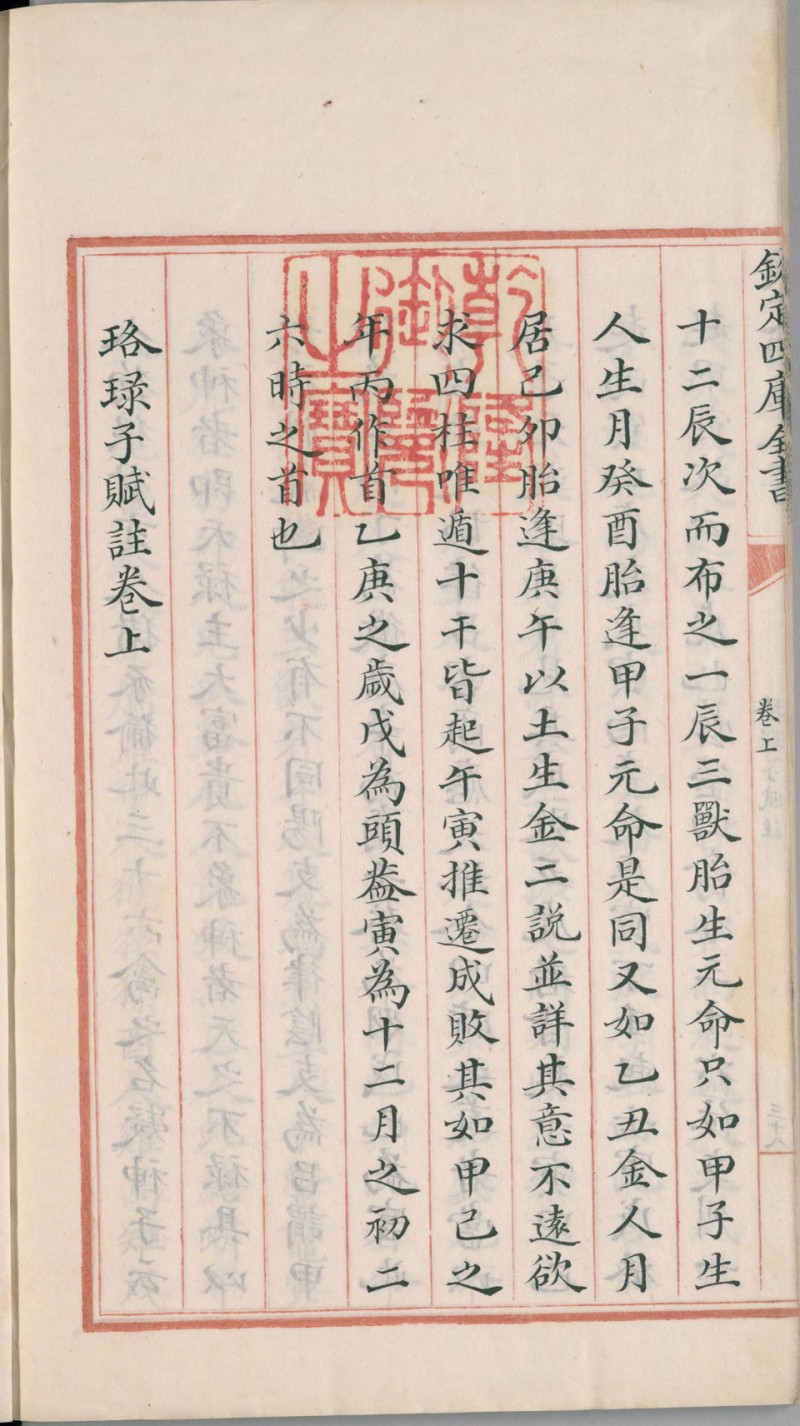 欽定四庫全書
卷上
十二辰次而布之一辰三獸胎生元命只如甲子生
人生月癸酉胎逢甲子元命是同又如乙丑金人月
居己卯胎逢庚午以土生金二説並詳其意不遠欲
求四柱唯遁十干皆起午寅推遷成敗其如甲己之
年丙作首乙庚之歲戊為頭葢寅為十二月之初二
六時之首也
珞琭子賦註卷上
乾隆御覽之寶